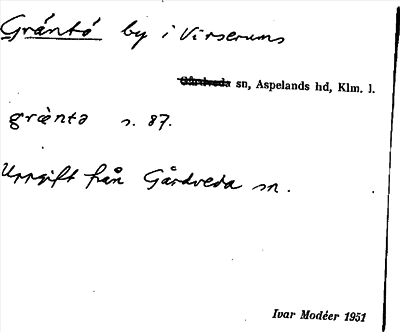 Gråntó by i Virserums
Gårdveda sn, Aspelands hd, Klm. l.
græ̀ntə s. 87.
Uppgift från Gårdveda sn.
Ivar Modéer 1951